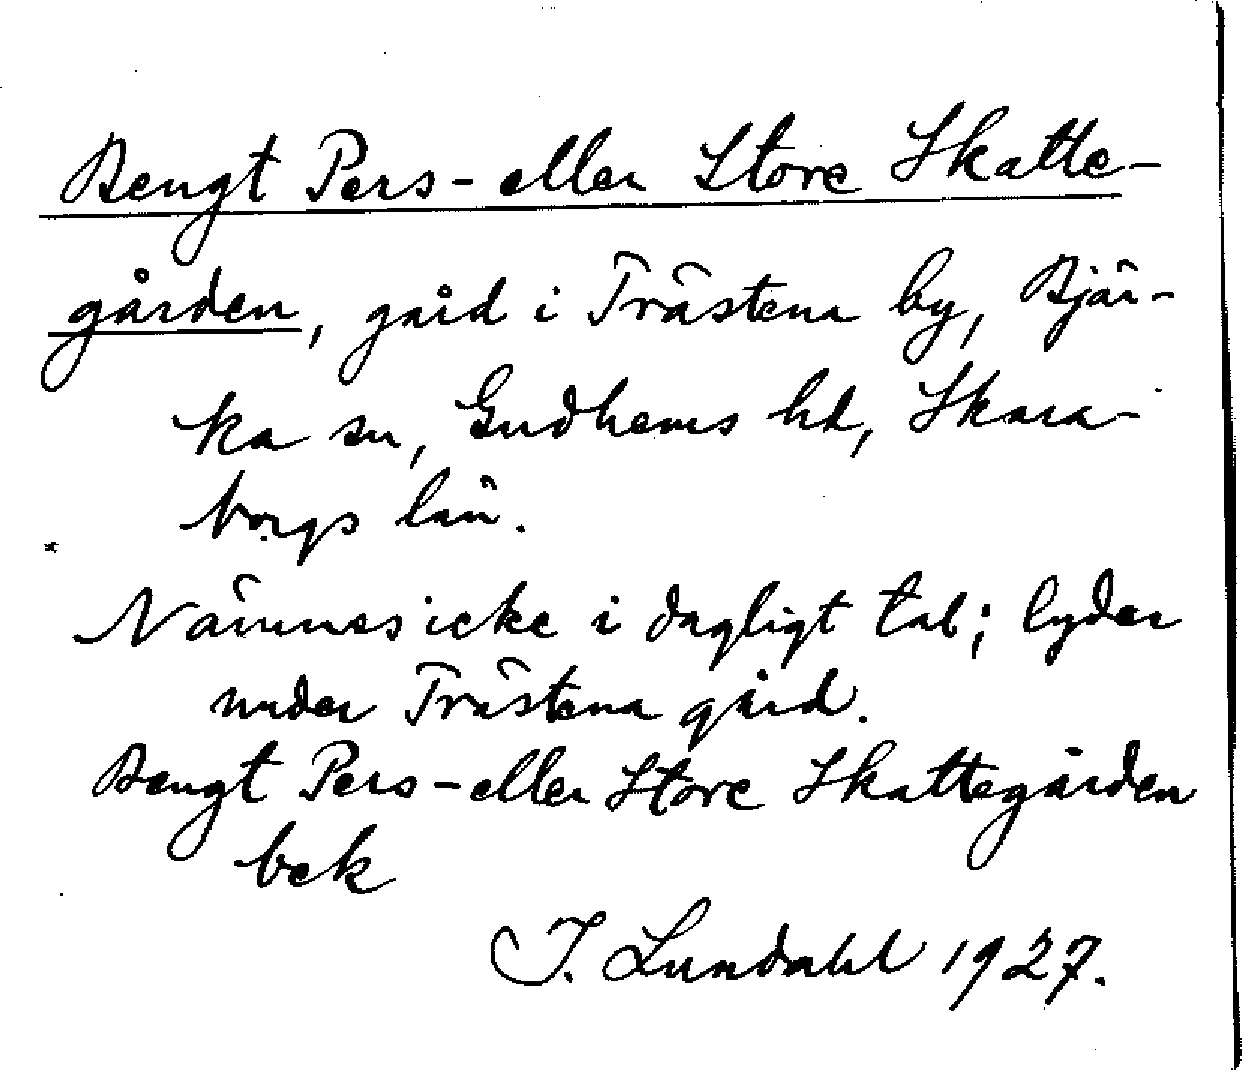 Bengt Pers- eller Store Skatte-
gården, gård i Trästena by, Bjär-
ka sn, Gudhems hd, Skara-
borgs län.
Nämnes icke i dagligt tal; lyder
under Trästena gård.
Bengt Pers- eller Store Skattegården
bek
I. Lundahl 1927.